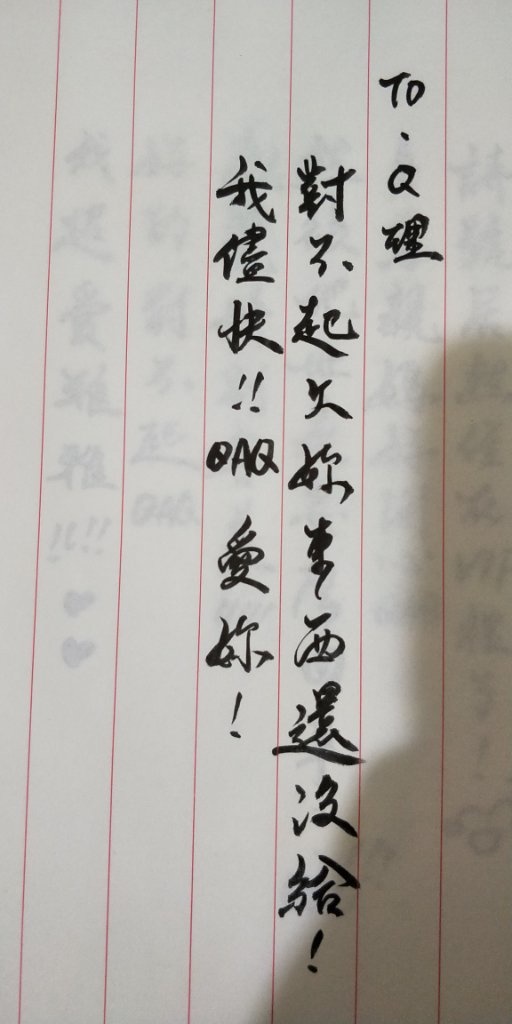 TO.Q理
對不起欠妳東西還沒給!
我儘快!!QAQ愛妳!